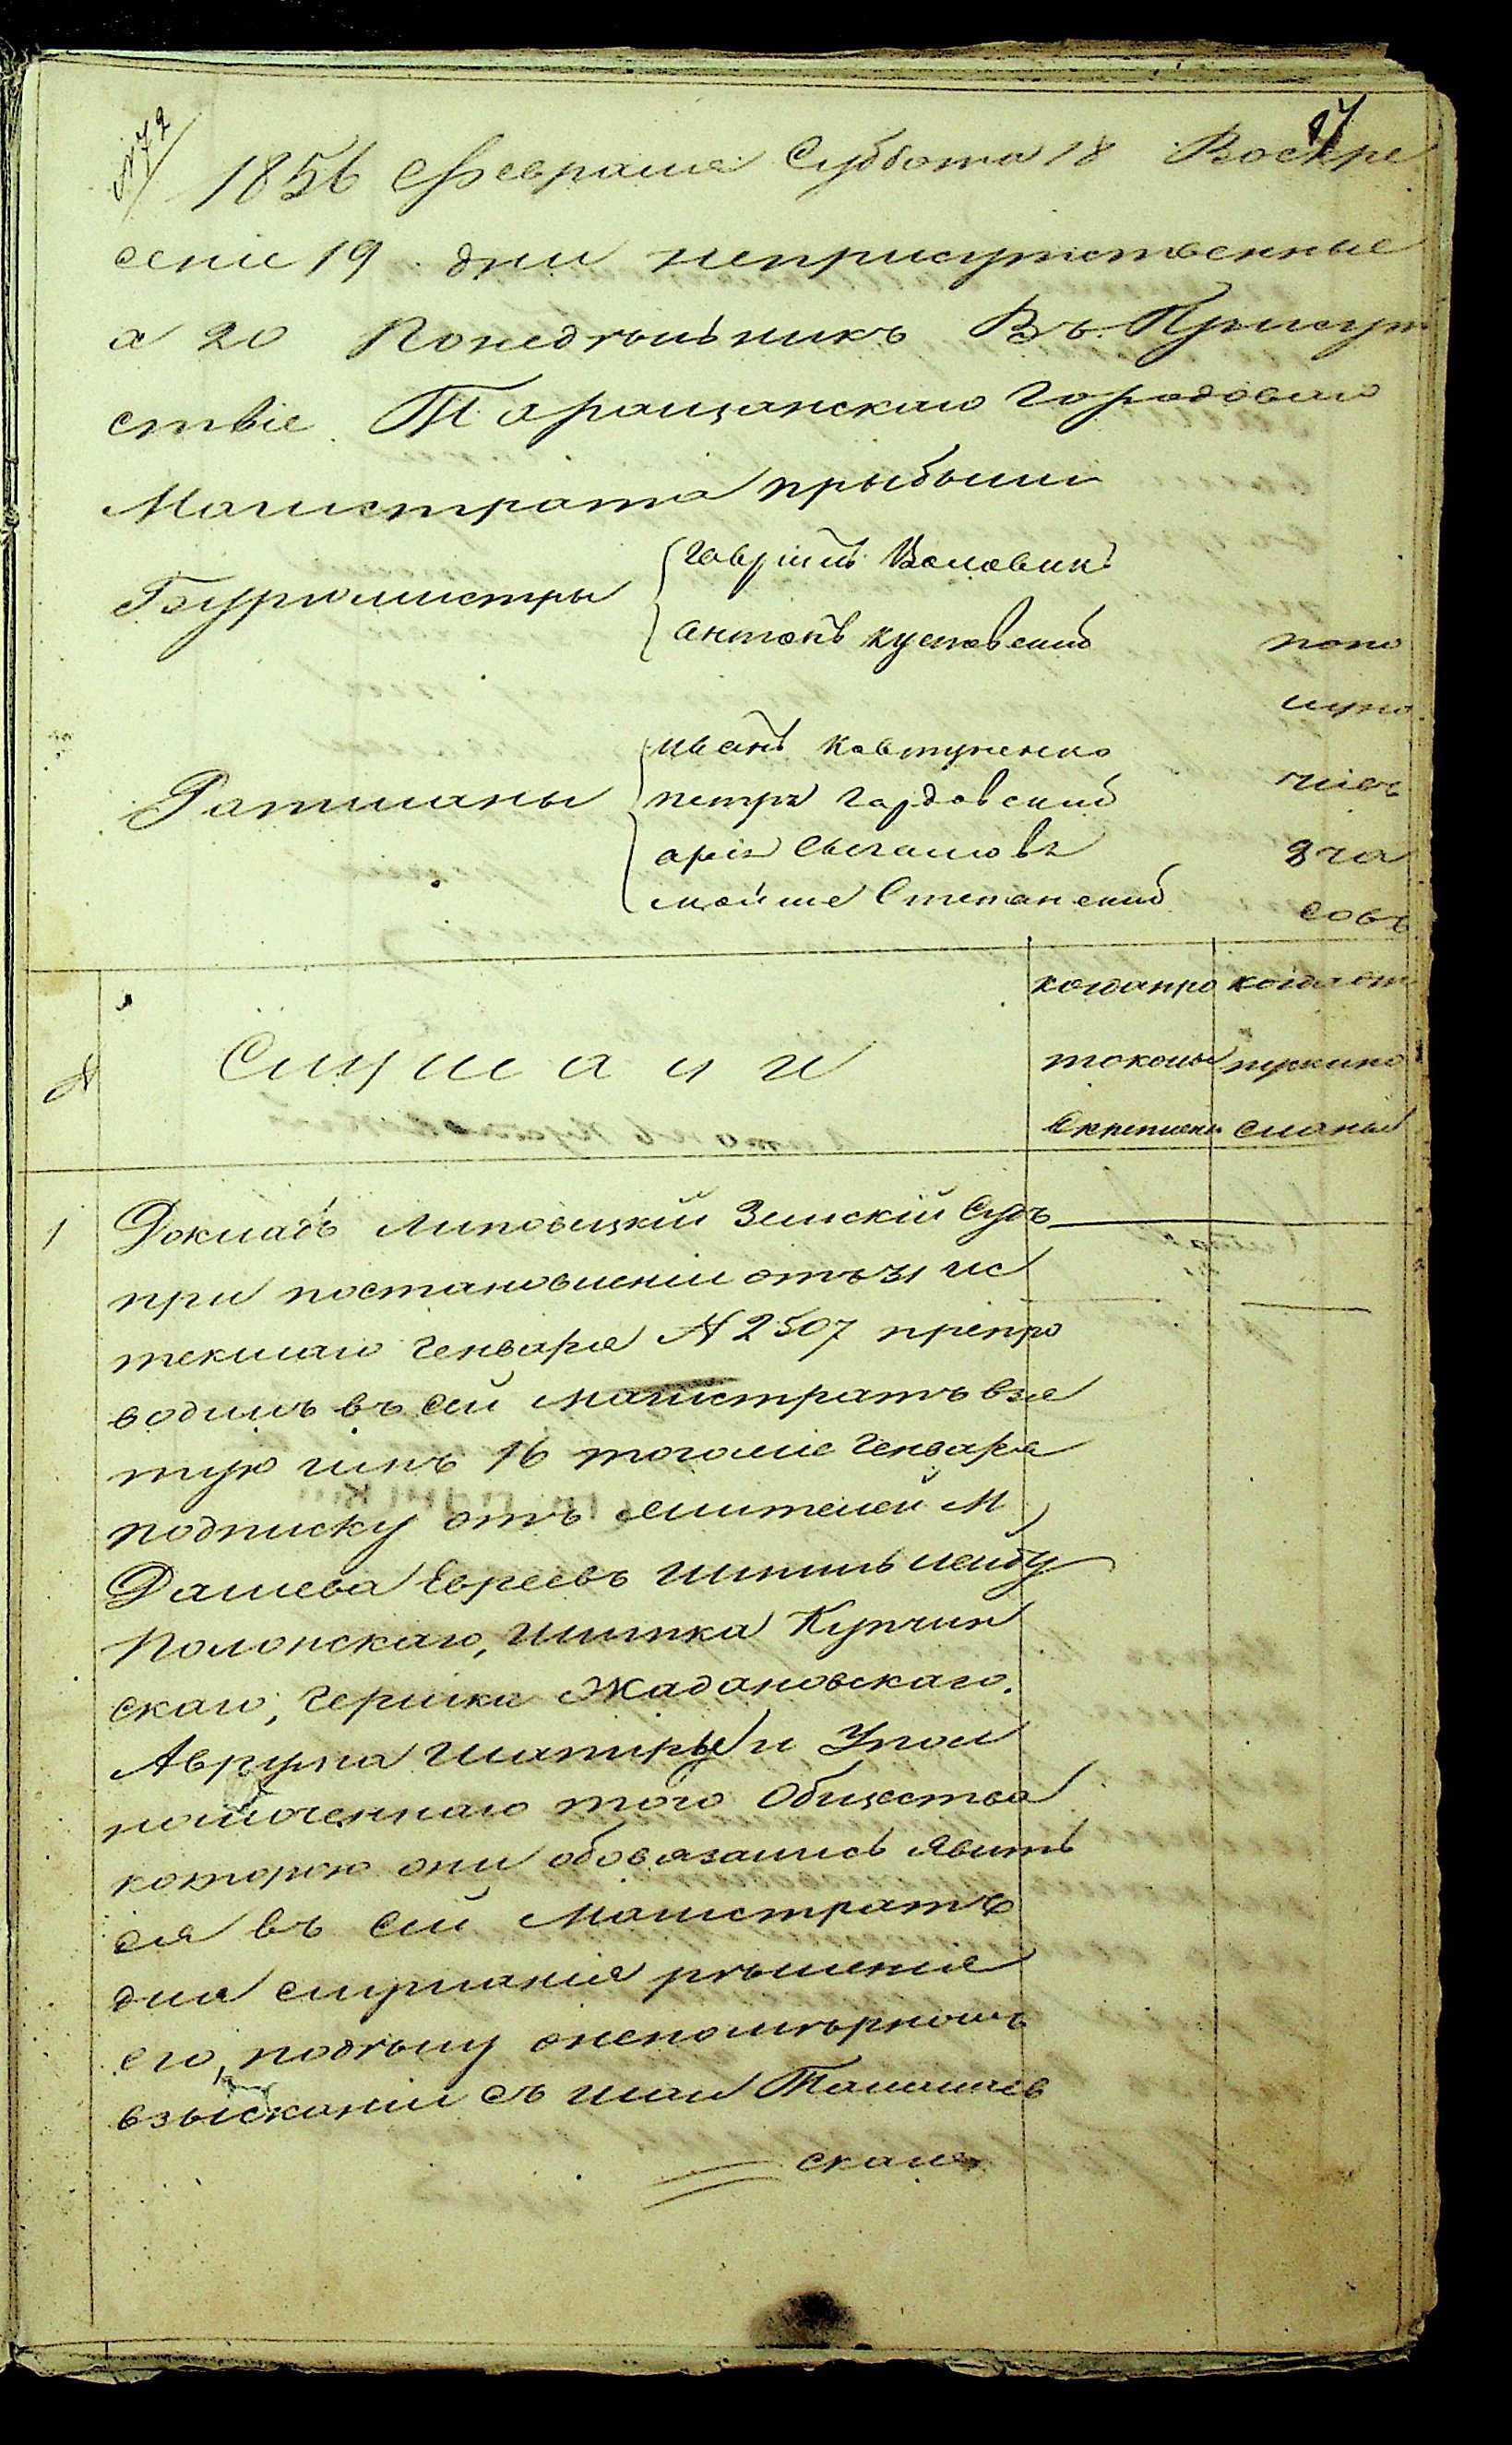 1856 Февраля Суббота 18 Воскре
сеніе 19 дни неприсутственные
а 20 Понедѣльникъ Въ Присут
ствіе Таращанскаго Городоваго
Магистрата прыбыли
Бургомистры
Гавріилъ Воловикъ
антонъ
Ратманы
иванъ Ковтуненко
петръ Гордовскій
арія
мойше Степанскій
пополу
но
чіи въ
2 ча
совъ
№
Слушали
когда про
токолы
скреплены
когда от
пуски по
сланы
1
Докладъ Липовецкій Земскій Судъ
при постановленіи отъ 31 ис
текшаго Генваря № 2507 препро
водилъ въ сей Магистратъ взя
тую имъ 16 тогоже Генваря
подписку отъ жителей М
Дашева Евреевъ Шмиль Лейбу
Полонскаго, Шмилка Купчин
скаго, Гершка Жадановскаго,
Аврума Шапиры и Упол
номоченнаго того Общества
которою они обовязались явить
ся въ сей Магистратъ
для слушанія рѣшенія
его, поделу онепомѣрномъ
взысканіи съ нихъ
скаго